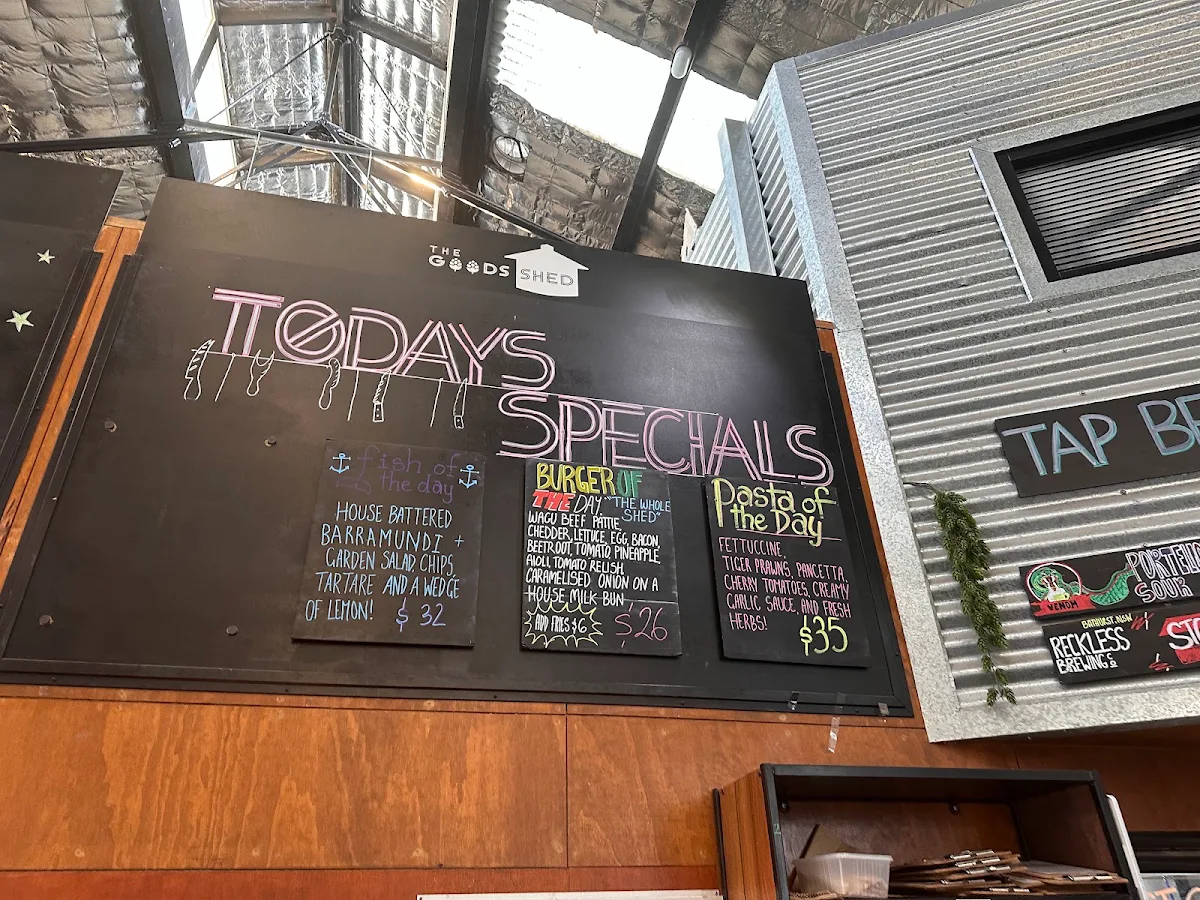 THE
GOODS SHED
TODAYS
SPECIALS
fish of
the day
HOUSE BATTERED
BARRAMUNDI +
GARDEN SALAD, CHIPS,
TARTARE AND A WEDGE
OF LEMON! $32
BURGER OF
THE DAY "THE WHOLE
SHED"
WAGU BEEF PATTIE,
CHEDDER, LETTUCE, EGG, BACON
BEETROOT, TOMATO, PINEAPPLE,
AIOLI TOMATO RELISH,
CARAMELISED ONION ON A
HOUSE MILK BUN
ADD FRIES $6
$26
Pasta of
the Day
FETTUCCINE,
TIGER PRAWNS, PANCETTA,
CHERRY TOMATOES, CREAMY
GARLIC SAUCE, AND FRESH
HERBS!
$35
TAP BE
VENOM
SOUR
BATHURST, NSW
RECKLESS
BREWING Co
2